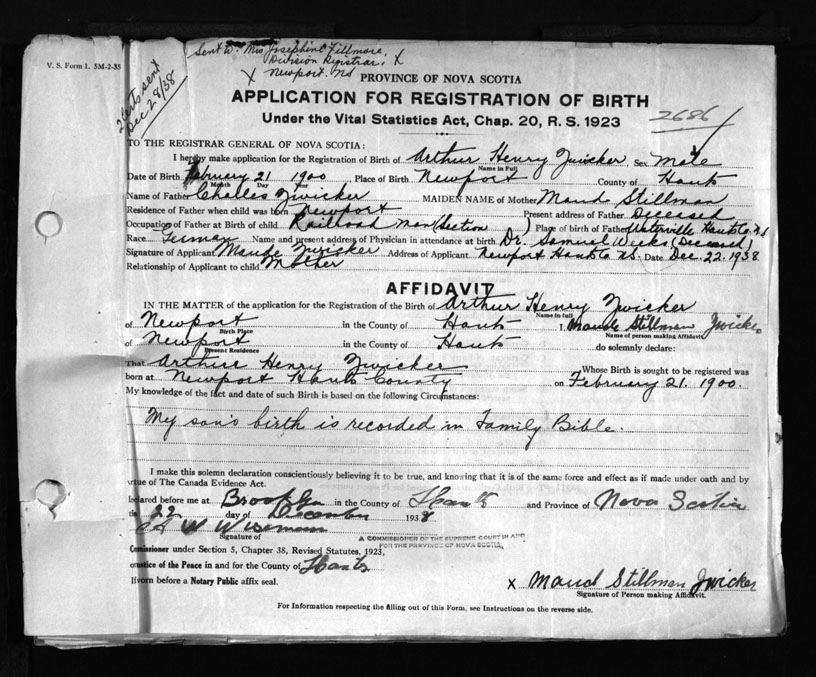 V. S. Form 1. 5M-2-35
Sent to Mrs Josephine Fillmore,
Division Registrar, X
X Newport. NS
2 Certs sent
Dec 28/38
PROVINCE OF NOVA SCOTIA
APPLICATION FOR REGISTRATION OF BIRTH
Under the Vital Statistics Act, Chap. 20, R. S. 1923
2686
TO THE REGISTRAR GENERAL OF NOVA SCOTIA:
I hereby make application for the Registration of Birth of Arthur Henry Zwicker, Sex Male
Name in Full
Date of Birth February 21 1900 Place of Birth Newport County of Hants
Month Day Year
Name of Father Charles Zwicker MAIDEN NAME of Mother Maud Stillman
Residence of Father when child was born Newport Present address of Father Deceased
Occupation of Father at Birth of child Railroad man (Section) Place of birth of Father Waterville Hants Co. N.S
Race German Name and present address of Physician in attendance at birth Dr. Samuel Weeks (Deceased)
Signature of Applicant Maude Zwicker Address of Applicant Newport Hants Co NS. Date Dec. 22. 1938
Relationship of Applicant to child Mother
AFFIDAVIT
IN THE MATTER of the application for the Registration of the Birth of Arthur Henry Zwicker
Name in full
of Newport in the County of Hants I, Maude Stillman Zwicker
Birth Place Name of person making Affidavit
of Newport in the County of Hants do solemnly declare:
Present Residence
That Arthur Henry Zwicker Whose Birth is sought to be registered was
born at Newport Hants County on February 21. 1900.
My knowledge of the fact and date of such Birth is based on the following Circumstances:
My son's birth is recorded in Family Bible.
I make this solemn declaration conscientiously believing it to be true, and knowing that it is of the same force and effect as if made under oath and by
virtue of The Canada Evidence Act.
Declared before me at Brooklyn in the County of Hants and Province of Nova Scotia
this 22 day of December 1938
W Wiseman
Signature of
A COMMISSIONER OF THE SUPREME COURT IN AND
FOR THE PROVINCE OF NOVA SCOTIA.
Commissioner under Section 5, Chapter 38, Revised Statutes, 1923,
Justice of the Peace in and for the County of Hants
If sworn before a Notary Public affix seal.
X Maud Stillman Zwicker
Signature of Person making Affidavit.
For Information respecting the filling out of this Form, see Instructions on the reverse side.